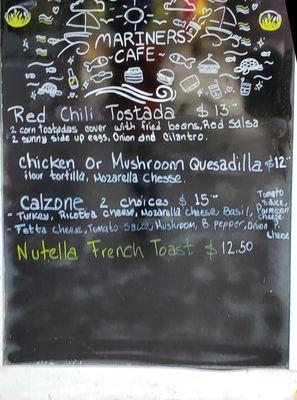 MARINERS
CAFE
Red Chili Tostada $13.
2 corn tostadas cover with fried beans, Red Salsa
2 sunny side up eggs, Onion and Cilantro.
Chicken Or Mushroom Quesadilla $12
flour tortilla, Mozarella Chesse.
Calzone 2 choices $15
- Turkey, Ricotta cheese, Mozarella cheese, Basil, Tomato
Sauce,
Parmison
cheese.
- Fetta cheese, Tomato Sauce, Mushroom, B pepper, Onion P.
Cheese
Nutella French Toast $12.50